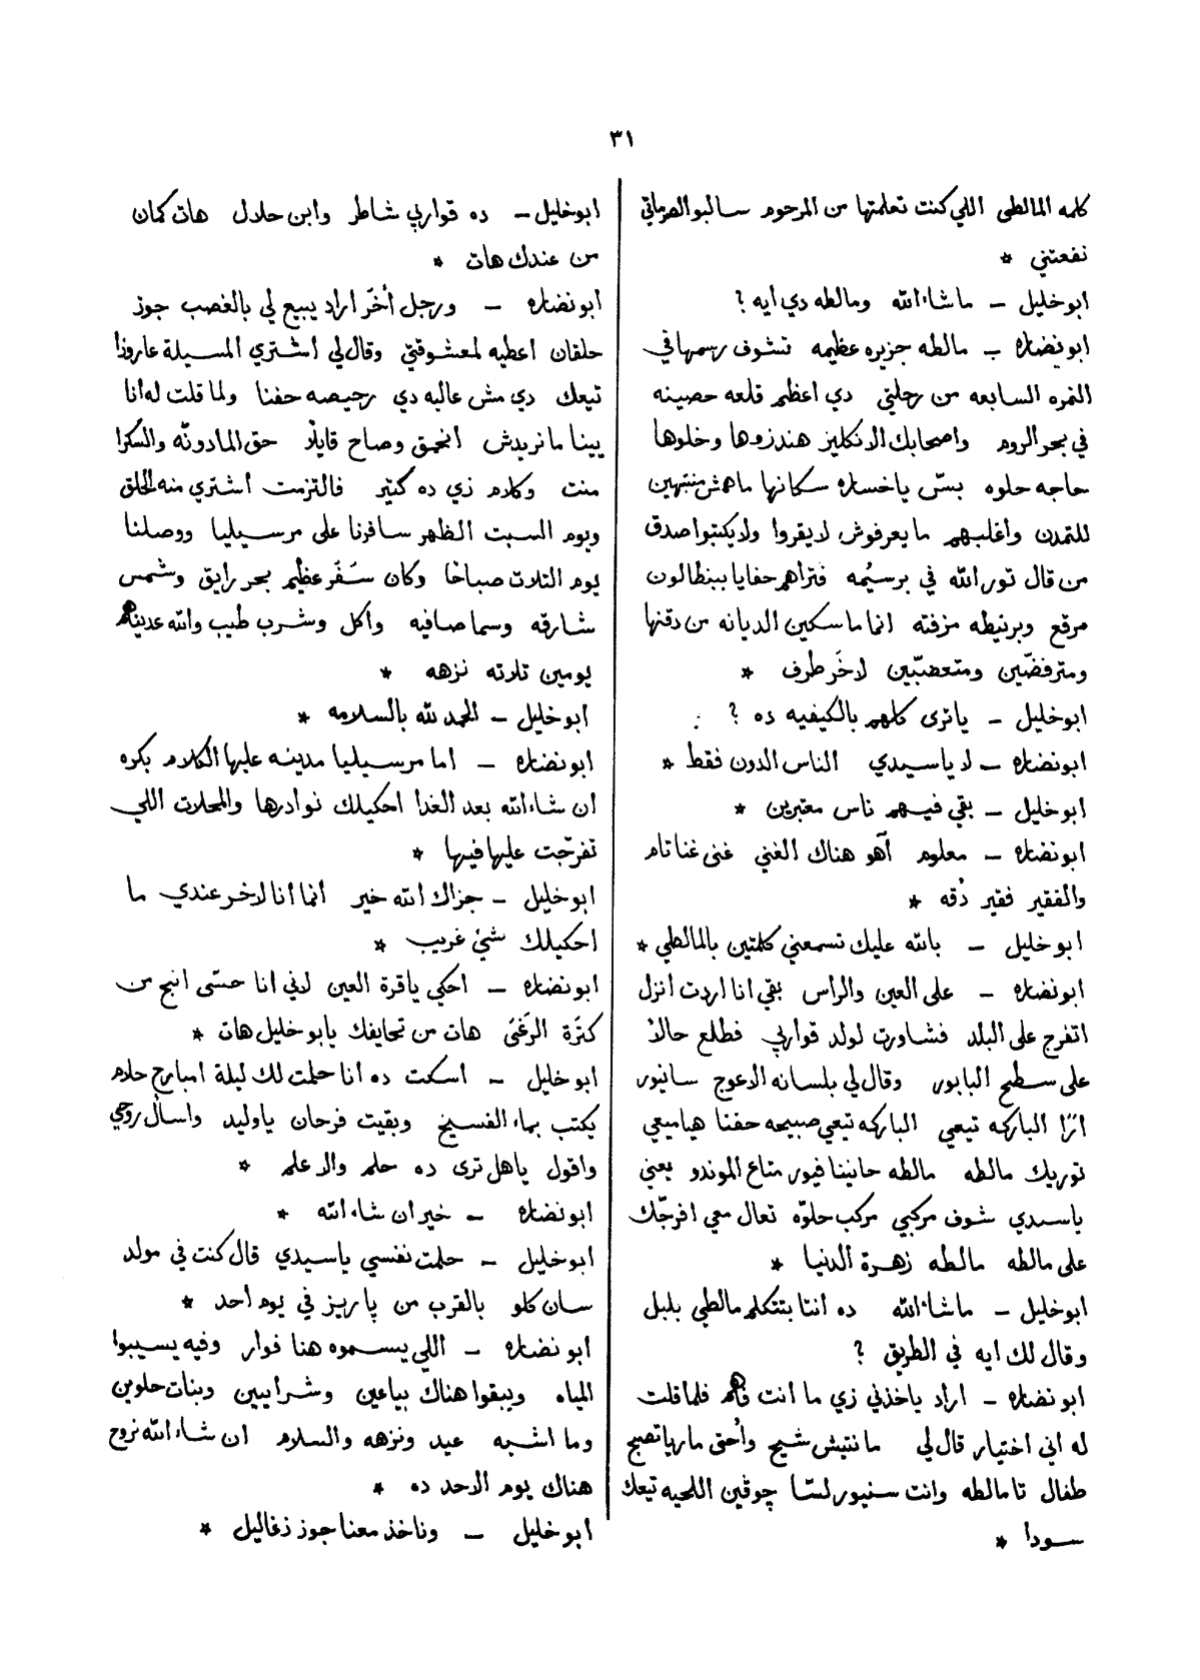 ٣١
كلمه المالطى اللي كنت تعلمتها من المرحوم سالبو الصرماتي
نفعتني *
ابو خليل – ماشاءالله ومالطه دي ايه ؟
ابو نضاره – مالطه جزيره عظيمه تشوف رسمها في
النمره السابعه من رحلتي دي اعظم قلعه حصينه
في بحر الروم واصحابك الانكليز هندزوها وخلوها
حاجه حلوه بسّ ياخساره سكانها ماهمش منتبهين
للتمدن واغلبهم ما يعرفوش لا يقروا ولا يكتبوا صدق
من قال نور الله في برسيمه فتراهم حفايا ببنطالون
مرقع وبرنيطه مزفته انما ماسكين الديانه من دقنها
ومترفضّين ومتعصّبين لاخَر طرف *
ابو خليل – ياترى كلهم بالكيفيه ده ؟
ابونضاره – لا ياسيدي الناس الدون فقط *
ابو خليل – بقي فيهم ناس معتبرين *
ابونضاره – معلوم آهو هناك الغني غنى غنا تام
والفقير فقير دُقه *
ابو خليل – بالله عليك تسمعني كلمتين بالمالطي *
ابونضاره – على العين والراس بقي انا اردت انزل
اتفرج على البلد فشاورت لولد قواربي فطلع حالاً
على سطح البابور وقال لي بلسانه الاعوج سانيور
ارَا الباركه تيعي الباركه تيعي صبيحه حفنا هيا ميعي
نوريك مالطه مالطه حانينا فيور متاع الموندو يعني
ياسيدي شوف مركبي مركب حلوّه تعال معي افرجّك
على مالطه مالطه زهرة الدنيا *
ابوخليل – ماشاءالله ده انتا بتتكلم مالطي بلبل
وقال لك ايه في الطريق ؟
ابو نضاره – اراد ياخذني زي ما انت فاهم فلما قلت
له اني اختيار قال لي ما نتيش شيح وأحق ماريا تصبح
طفال تا مالطه وانت سنيور لسّا چوڤين اللحيه تيعك
سودا *
ابوخليل – ده قواربي شاطر وابن حلال هات كمان
من عندك هات *
ابونضاره – ورجل أخَر اراد يبيع لي بالغصب جوز
حلقان اعطيه لمعشوقتي وقال لي اشتري المسيلة عاروزا
تيعك دي مش عاليه دي رخيصه حفنا ولما قلت له انا
يينا ما نريدش انحمق وصاح قايلاً حق المادونّه والسكرا
منت وكلام زي ده كتير فالتزمت اشتري منه الحلق
ويوم السبت الظهر سافرنا على مرسيليا ووصلنا
يوم التلات صباحًا وكان سَفَر عظيم بحر رايق وشمس
شارقه وسما صافيه واكل وشرب طيب والله عديناهم
يومين تلاته نزهه *
ابوخليل – الحمد لله بالسلامه *
ابونضاره – اما مرسيليا مدينه عليها الكلام بكره
ان شاءالله بعد الغدا احكيلك نوادرها والمحلات اللي
تفرّجت عليها فيها *
ابوخليل – جزاك الله خير انما انا لاخر عندي ما
احكيلك شئ غريب *
ابونضاره – احكي ياقرة العين لاني انا حسّى انبح من
كثرة الرَغَى هات من تحايفك يابو خليل هات *
ابوخليل – اسكت ده انا حلمت لك ليلة امبارح حلام
يكتب بماء الفسيخ وبقيت فرحان ياوليد واسأل روحي
واقول ياهل ترى ده حلم والا علم *
ابونضاره – خير ان شاءالله *
ابوخليل – حلمت نفسي ياسيدي قال كنت في مولد
سان كلو بالقرب من پاريز في يوم أحد *
ابو نضاره – اللي يسموه هنا فوار وفيه يسيبوا
المياه ويبقوا هناك بياعين وشرابيين وبنات حلوين
وما اشبه عيد ونزهه والسلام ان شاءالله نروح
هناك يوم الاحد ده *
ابوخليل – وناخذ معنا جوز زغاليل *